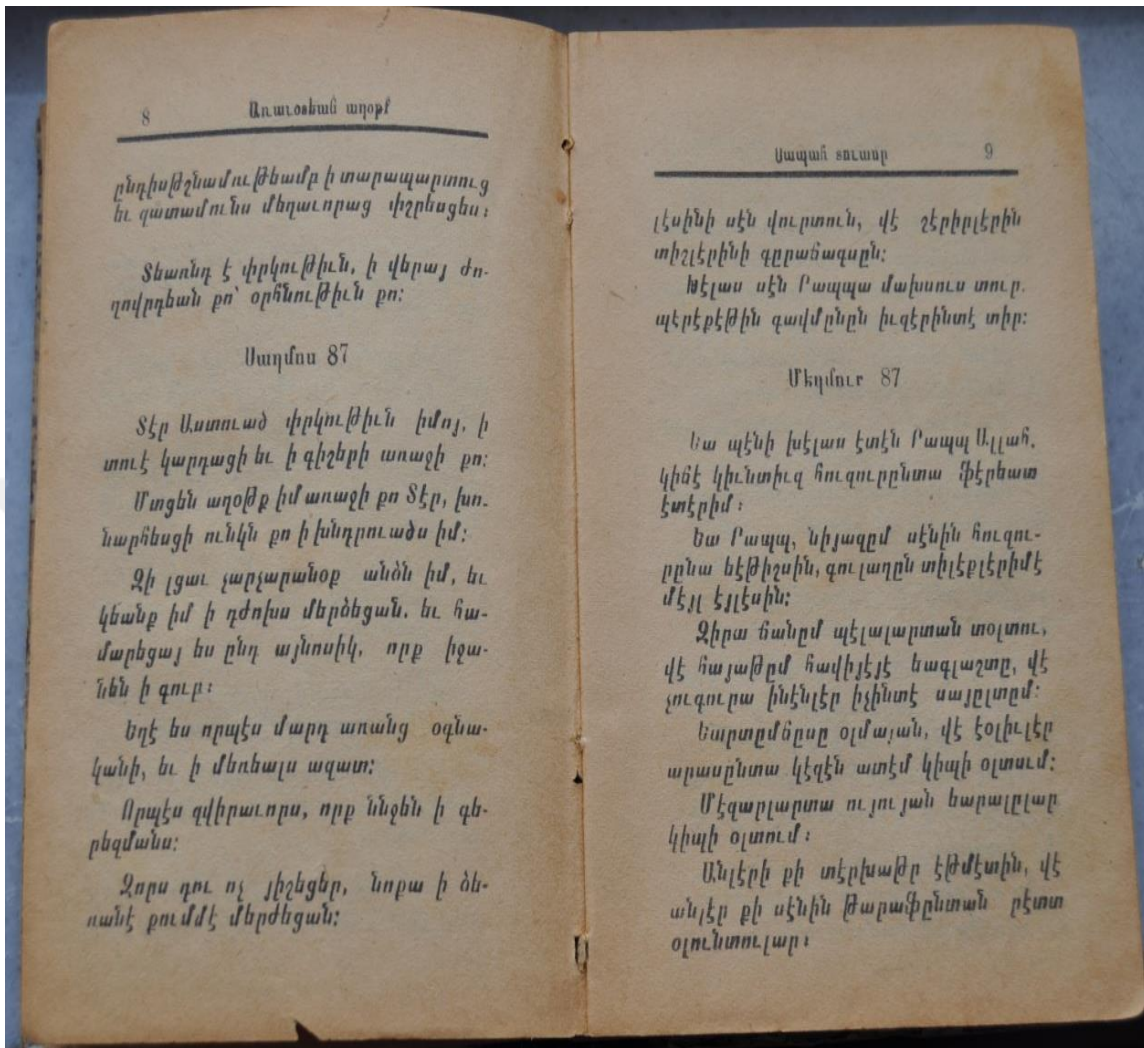 8
Առաւօտեան աղօթք
ընդխսթշնամութեամբ ի տարապարտուց
եւ զատամունս մեղաւորաց փշրեսցես։
Տեառնդ է փրկութիւն, ի վերայ ժո-
ղովրդեան քո՝ օրհնութիւն քո։
Սաղմոս 87
Տէր Աստուած փրկութիւն իմոյ, ի
տուէ կարդացի եւ ի գիշերի առաջի քո։
Մտցեն աղօթք իմ առաջի քո Տէր, խո-
նարհեսցի ունկն քո ի խնդրուածս իմ։
Զի լցաւ չարչարանօք անձն իմ, եւ
կեանք իմ ի դժոխս մերձեցան. եւ հա-
մարեցայ ես ընդ այնոսիկ, որք իջա-
նեն ի գուր։
Եղէ ես որպէս մարդ առանց օգնա-
կանի, եւ ի մեռեալս ազատ։
Որպէս զվիրաւորս, որք ննջեն ի գե-
րեզմանս։
Զորս դու ոչ յիշեցեր, նոքա ի ձե-
ռանէ քումմէ մերժեցան։
Սապահ տուասր
9
լէսինի սէն վուրտուն, վէ շէրիրլէրին
տիշլէրինի գըրաճագսըն։
Խէլաս սէն Րապպա մախսուս տուր.
պէրէքէթին գավմընըն իւզէրինտէ տիր։
Մեղմուր 87
Եա պէնի խէլաս էտէն Րապպ Ալլահ.
կիճէ կիւնտիւզ հուզուրընտա ֆէրեատ
էտէրիմ։
Եա Րապպ, նիյազըմ սէնին հուզու-
րընա եէթիշսին, գուլաղըն տիլէքլէրիմէ
մէյլ էյլէսին։
Զիրա ճանըմ պէլալարտան տօլտու,
վէ հայաթըմ հավիյէյէ եագլաշտը, վէ
չուգուրա ինէնլէր իչինտէ սայըլտըմ։
Եարտըմճըսը օլմայան, վէ էօլիւլէր
արասընտա կէզէն ատէմ կիպի օլտում։
Մէզարլարտա ույույան եարալըլար
կիպի օլտում։
Անլէրի քի տէրխաթը էթմէտին, վէ
անլէր քի սէնին թարաֆընտան րէտտ
օլունտուլար։